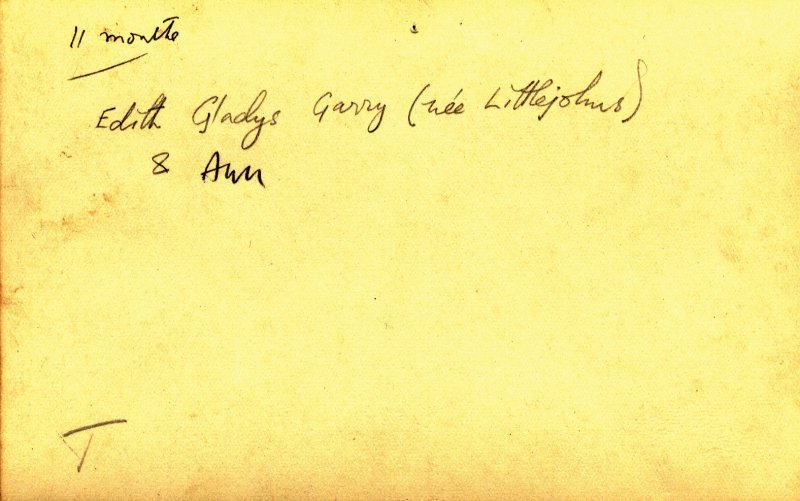 11 months
Edith Gladys Garry (née Littlejohns)
& Ann
T